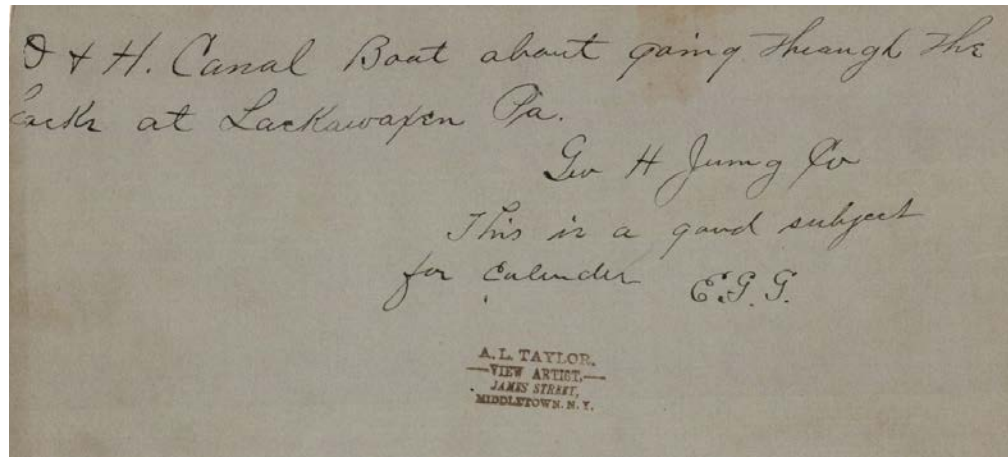 D & H. Canal Boat about going through the
Locks at Lackawaxen Pa.
Geo H Jung Co
This is a good subject
for Calender E.G.G.
A. L. TAYLOR.
VIEW ARTIST,
JAMES STREET,
MIDDLETOWN. N. Y.